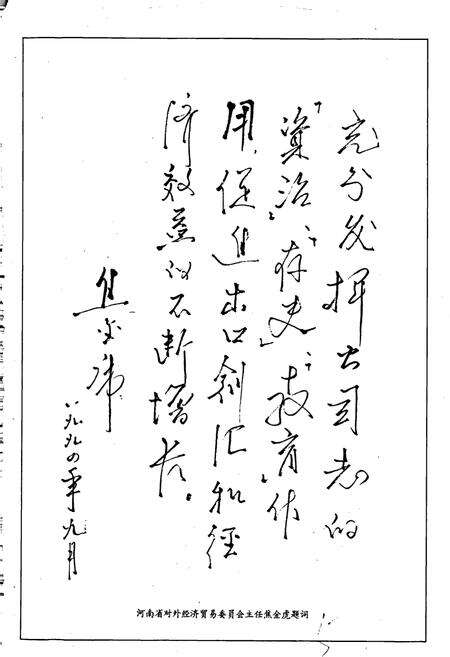 充分发挥公司志的
“资治”、“存史”、“教育”作
用，促进出口创汇和经
济效益的不断增长。
焦金虎
一九九四年九月
河南省对外经济贸易委员会主任焦金虎题词